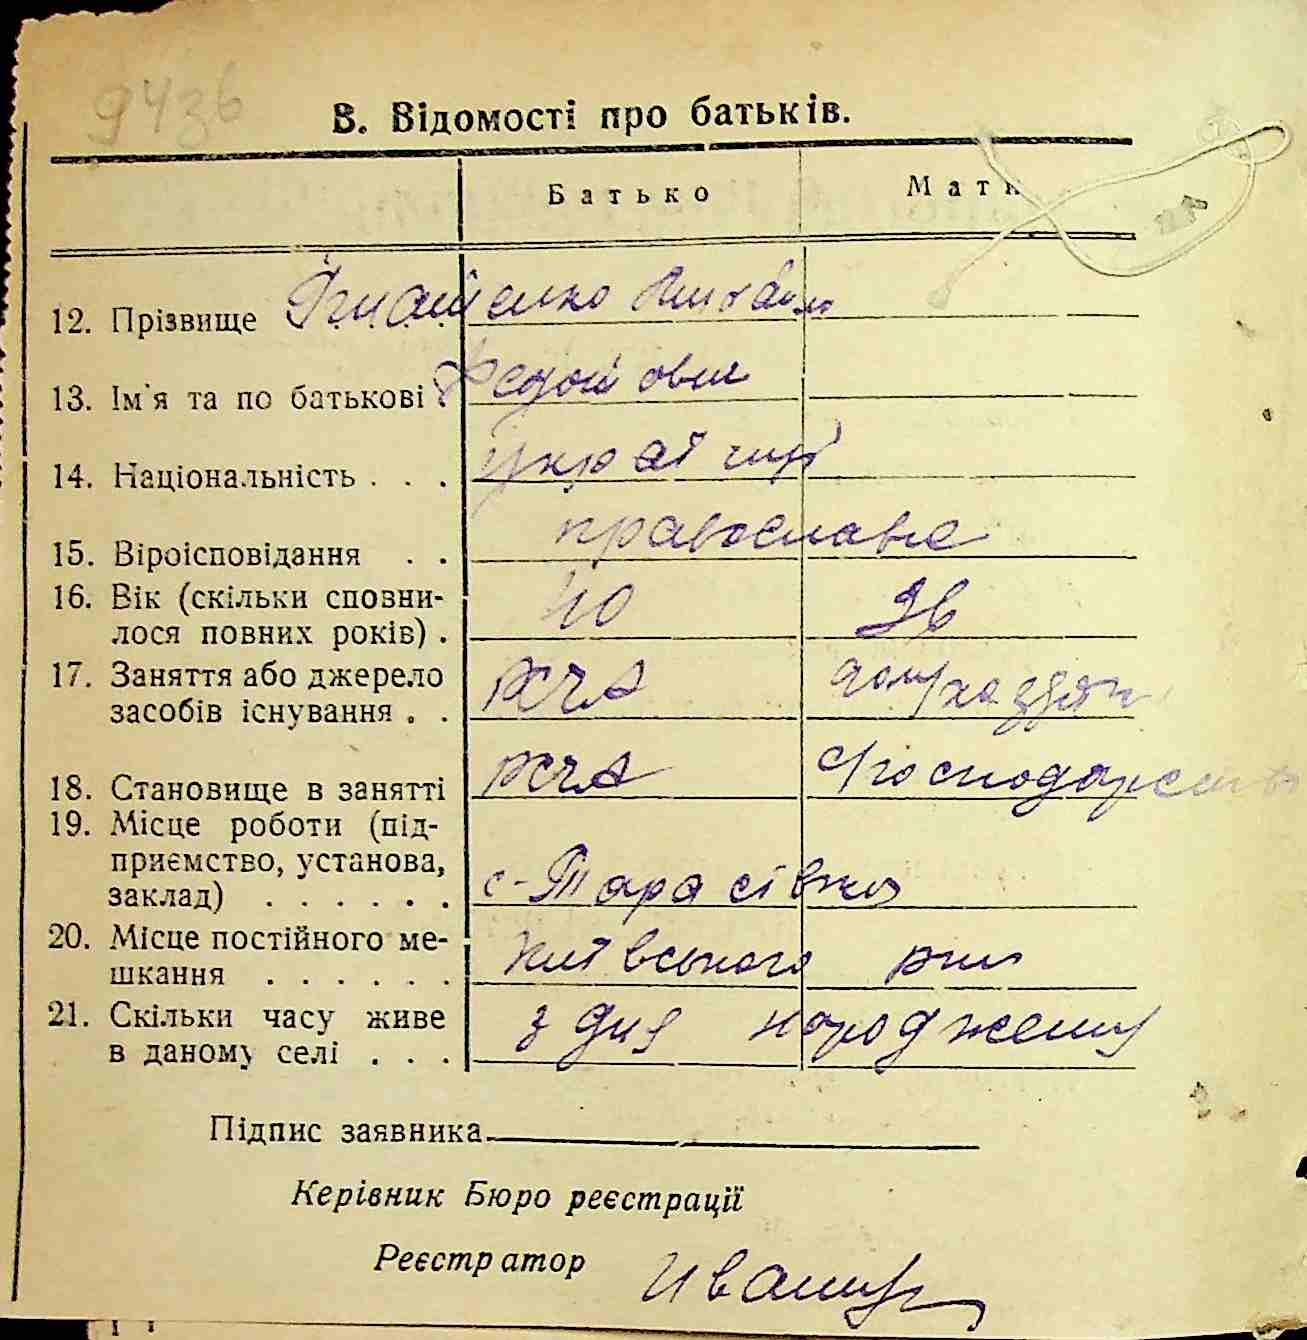 В. Відомості про батьків.
Батько Мати
12. Прізвище Ігнатенко
13. Ім'я та по батькові .
14. Національність . . . українці
15. Віроісповідання . . православне
16. Вік (скільки сповни-
лося повних років) . 40 36
17. Заняття або джерело
засобів існування . . РСЧА
18. Становище в занятті РСЧА
19. Місце роботи (під-
приємство, установа,
заклад) . . . . . . с-Тарасівка
20. Місце постійного ме-
шкання . . . . . . Київського р-ну
21. Скільки часу живе
в даному селі . . . з дня народження
Підпис заявника
Керівник Бюро реєстрації
Реєстратор